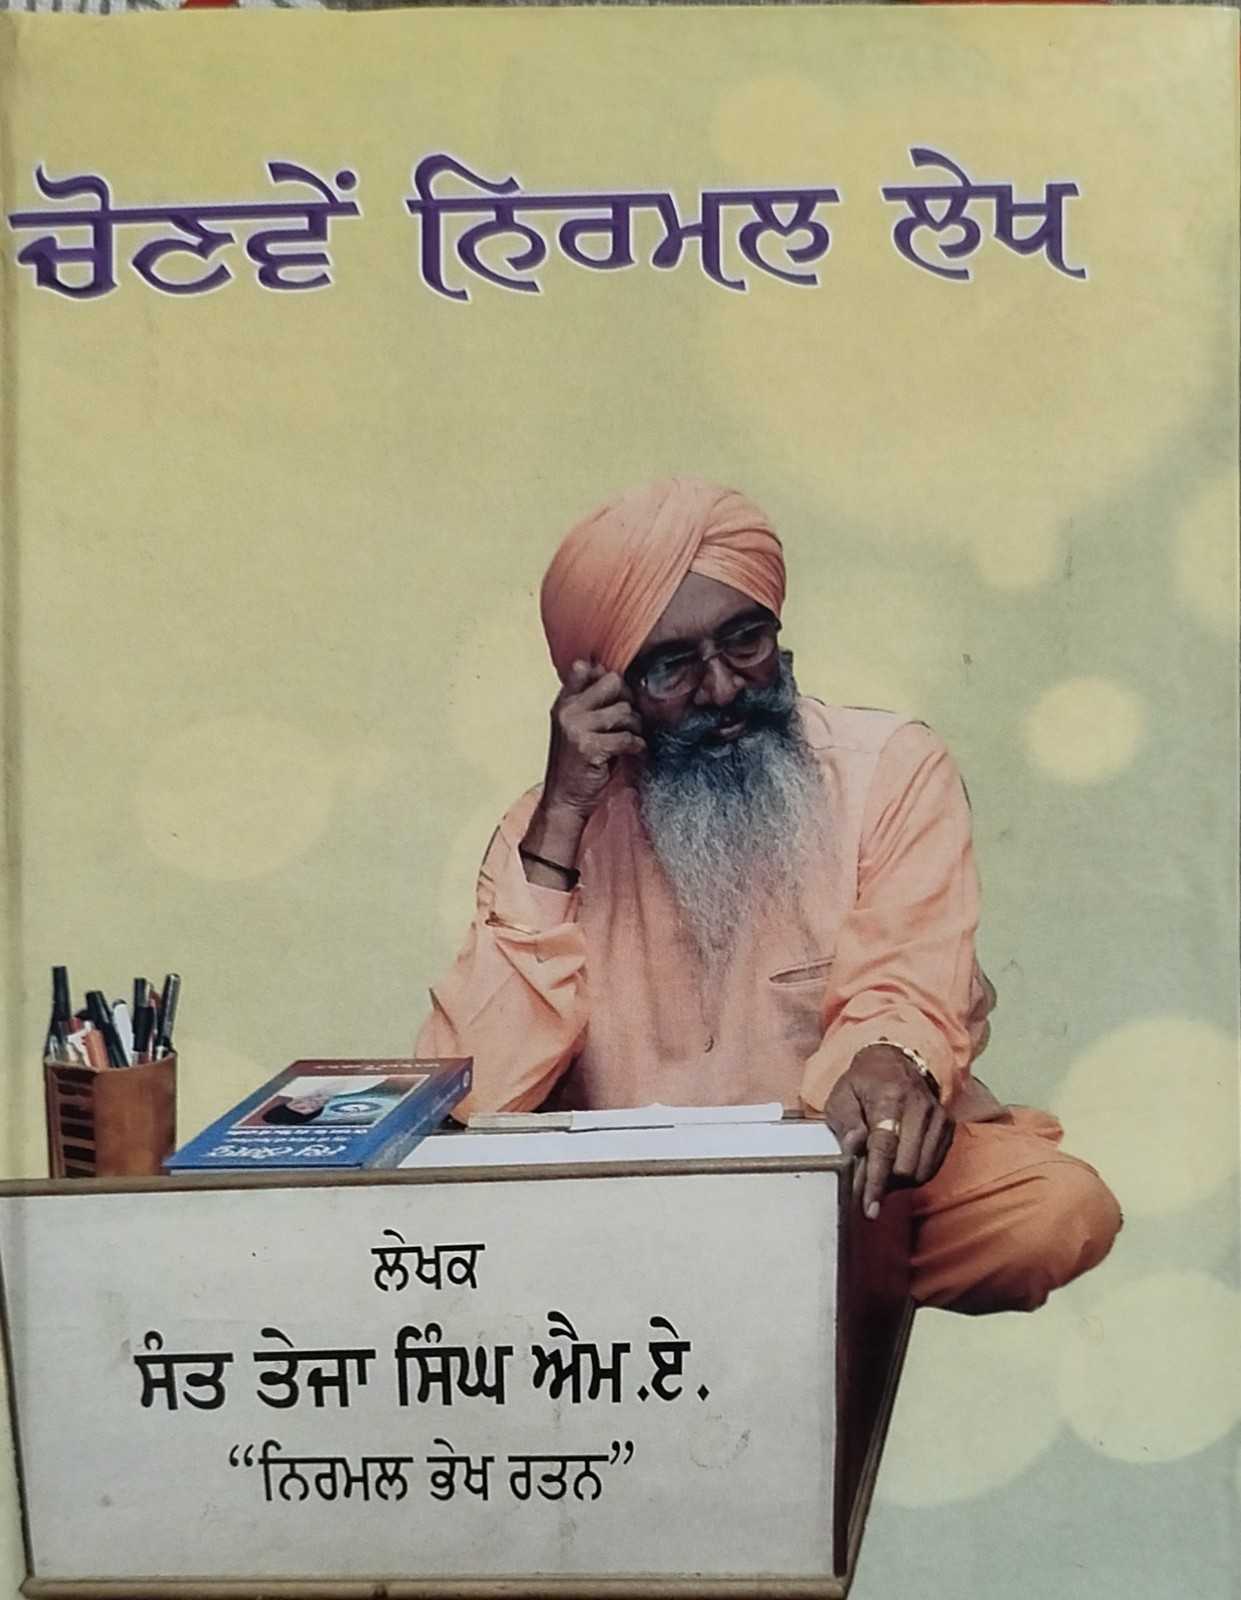 ਚੋਣਵੇਂ ਨਿਰਮਲ ਲੇਖ
ਲੇਖਕ
ਸੰਤ ਤੇਜਾ ਸਿੰਘ ਐਮ.ਏ.
“ਨਿਰਮਲ ਭੇਖ ਰਤਨ”